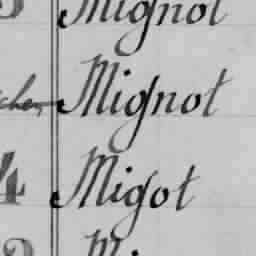 Mignot
Mignot
4 Migot